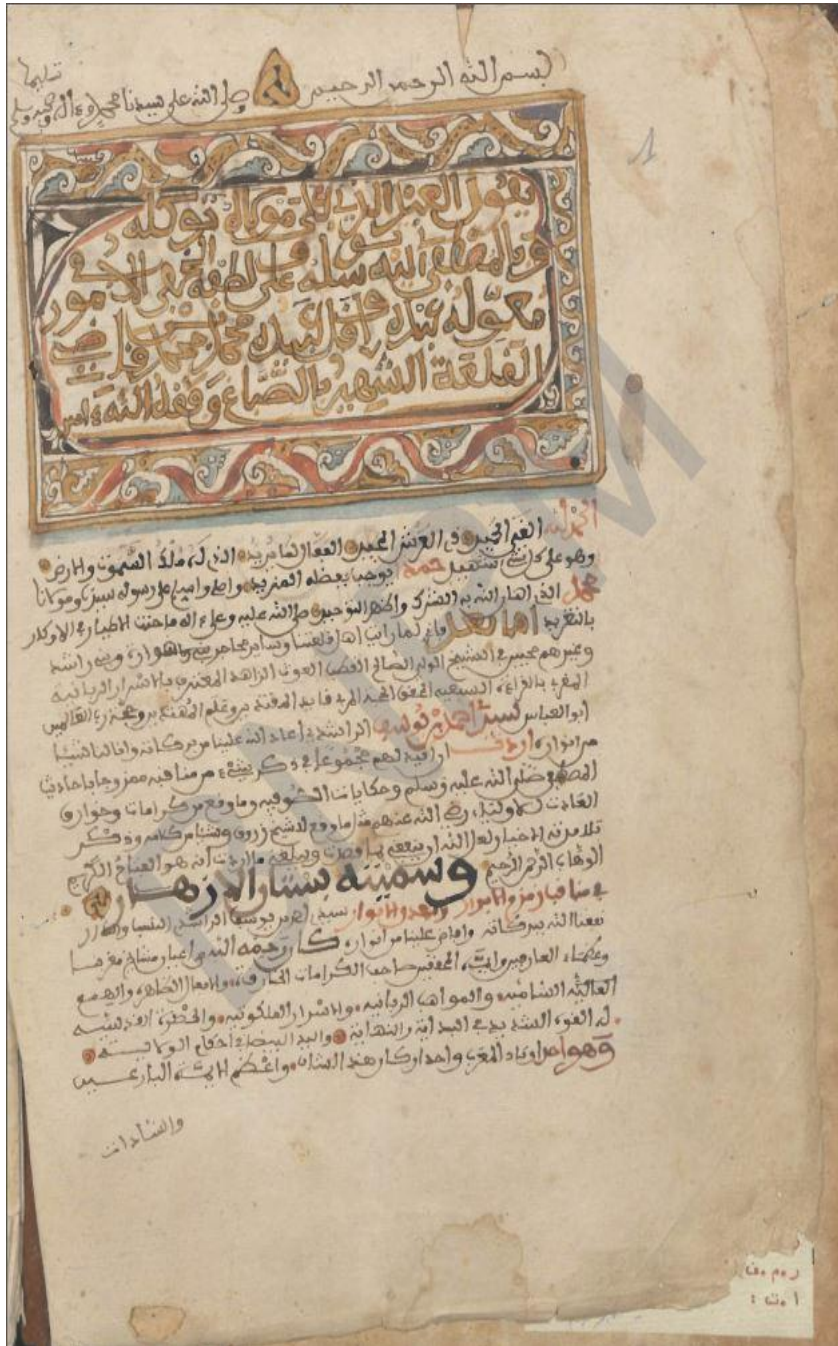 بسم الله الرحمن الرحيم وصلى الله على سيدنا محمد وءاله وصحبه وسلم
تسليما
1
يقول العبد الذي على مولاه توكله
وبالمصطفى اليه توسله وعلى لطفه الخفي في الامور
معوله عبده واقل عبيده محمد بن محمد قاضي
القلعة الشهير بالصباغ وفقه الله ءامين
الحمد لله الغني الحميد ذي العرش المجيد الفعال لما يريد الذي له ملك السموت والارض
وهو على كل شيء شهيد حمدا يوجب بفضله المزيد واصلي واسلم على رسوله سيدنا ومولانا
محمد الذي اباد الله به الشرك واظهر التوحيد صلى الله عليه وعلى ءاله ما حنت الاطيار في الاوكار
بالتغريد اما بعد فاني لما رايت اهل قلعتنا وساير هوارة وبني راشد
وغيرهم محبين في الشيخ الولي الصالح القطب الغوث الزاهد بالاسرار الربانية
ابو العباس سيدي احمد بن يوسف الراشدي اعاد الله علينا من بركاته وانالنا
من انواره اردت ان اقيد لهم مجموعا في ذكر شيء من مناقبه ممزوجا باحاديث
المصطفى صلى الله عليه وسلم وحكايات الصوفية وما وقع من كرامات وخوارق
العادات للاولياء رضي الله عنهم مثل ما وقع للشيخ زروق وشيئا من كلامه وذكر
تلامذته الاخيار ولعل الله ان ينفعه بما قصدت ويبلغه ما اردت انه هو الفتاح الكريم
الوهاب الرحمن الرحيم وسميته بستان الازهار
في مناقب زمزم الاخيار ومعدن الانوار سيدي احمد بن يوسف الراشدي النسب والدار
نفعنا الله ببركاته وافاض علينا من انواره كان رحمه الله من اعيان مشايخ مغربها
وعظماء العارفين وايمة المحققين صاحب الكرامات الخارقة والافعال الظاهرة والهمم
العالية السامية والمواهب الربانية والاسرار الملكوتية والحظرة القدسية
له القوة الشديدة في البداية والنهاية واليد البيضاء في احكام الولاية
وهو احد اوتاد المغرب واحد اركان هذا الشان واعظم الايمة البارعين
والسادات